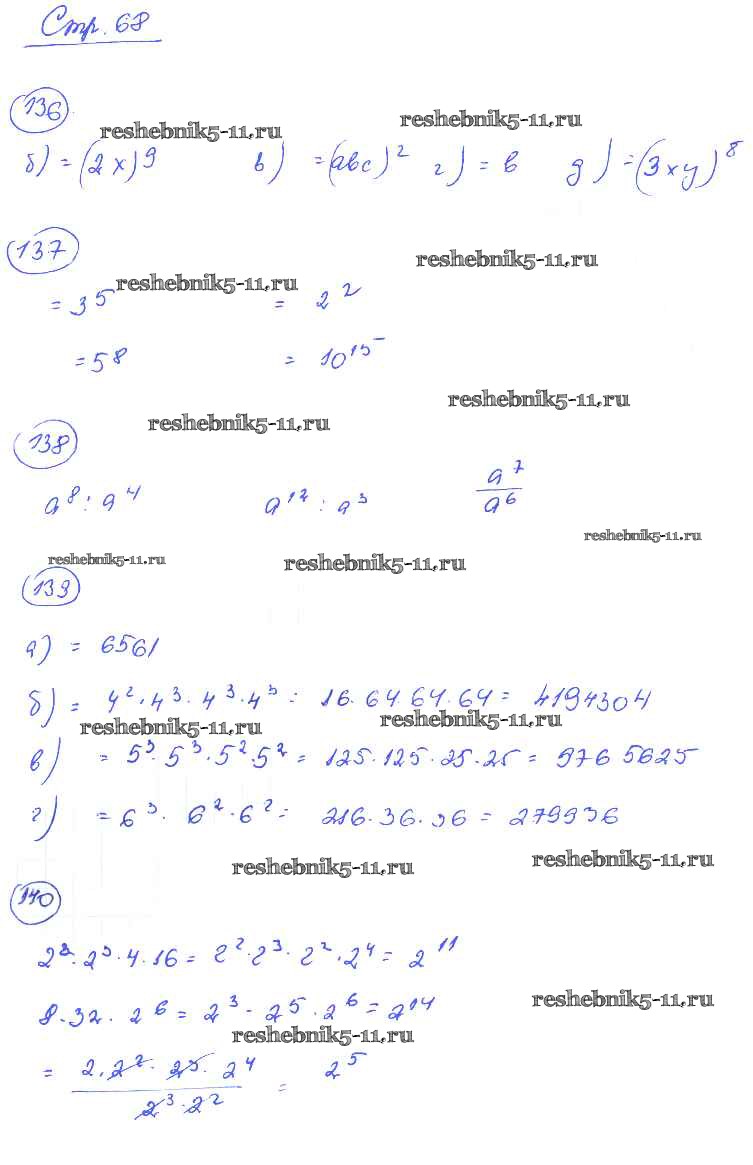 Стр. 68
136
reshebnik5-11.ru reshebnik5-11.ru
б) = (2x)9 в) = (abc)² г) = в д) = (3xy)⁸
137
reshebnik5-11.ru
reshebnik5-11.ru
= 3⁵ = 2²
= 5⁸ = 10¹⁵
reshebnik5-11.ru
reshebnik5-11.ru
138
a⁸ : a⁴ a¹² : a³ a⁷/a⁶
reshebnik5-11.ru
reshebnik5-11.ru reshebnik5-11.ru
139
а) = 6561
б) = 4² · 4³ · 4³ · 4³ = 16 · 64 · 64 · 64 = 4194304
reshebnik5-11.ru reshebnik5-11.ru
в) = 5³ · 5³ · 5² · 5² = 125 · 125 · 25 · 25 = 976 5625
г) = 6³ · 6² · 6² = 216 · 36 · 36 = 279936
reshebnik5-11.ru reshebnik5-11.ru
140
2² · 2³ · 4 · 16 = 2² · 2³ · 2² · 2⁴ = 2¹¹
reshebnik5-11.ru
8 · 32 · 2⁶ = 2³ · 2⁵ · 2⁶ = 2¹⁴
reshebnik5-11.ru
= 2 · 2² · 2³ · 2⁴ / 2³ · 2² = 2⁵